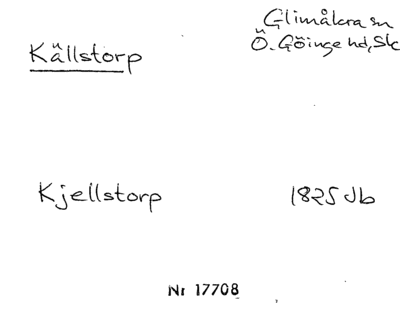 Källstorp
Glimåkra sn
Ö. Göinge hd, Sk
Kjellstorp
1825 Jb
Nr 17708